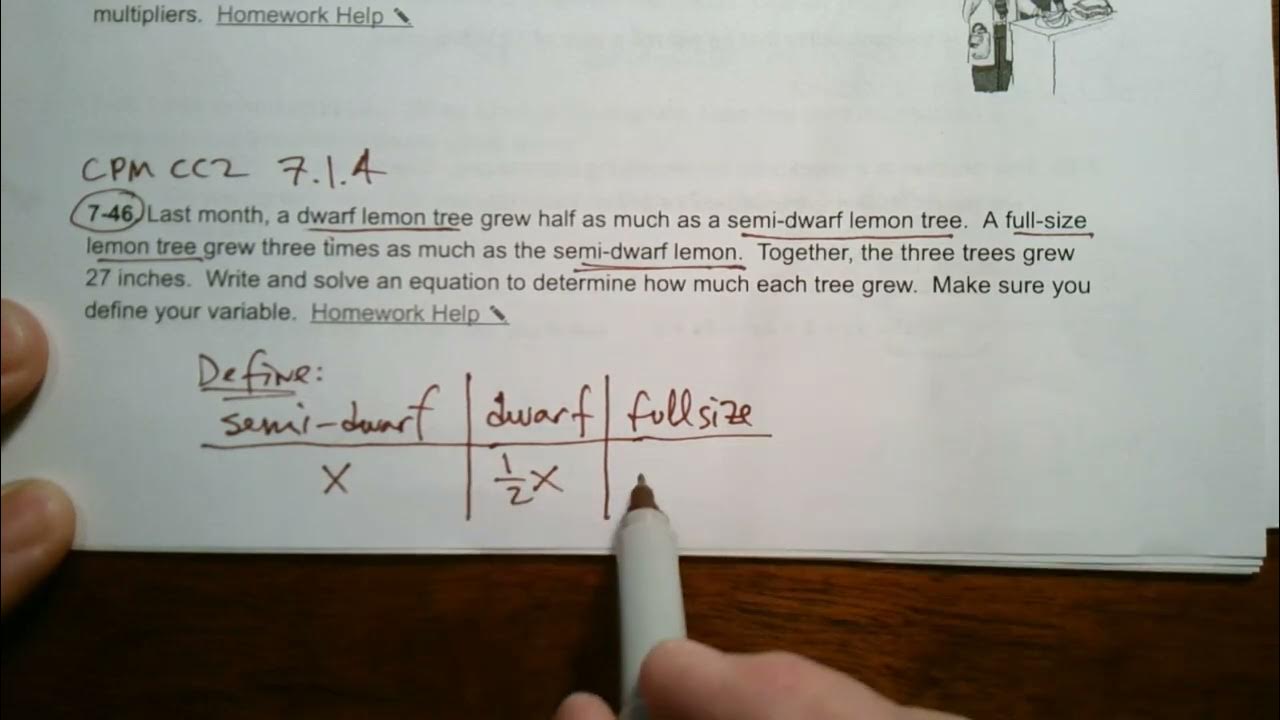 multipliers. Homework Help ✎
CPM CC2 7.1.4
7-46 Last month, a dwarf lemon tree grew half as much as a semi-dwarf lemon tree. A full-size
lemon tree grew three times as much as the semi-dwarf lemon. Together, the three trees grew
27 inches. Write and solve an equation to determine how much each tree grew. Make sure you
define your variable. Homework Help ✎
Define:
semi-dwarf | dwarf | full size
x | 1/2 x |